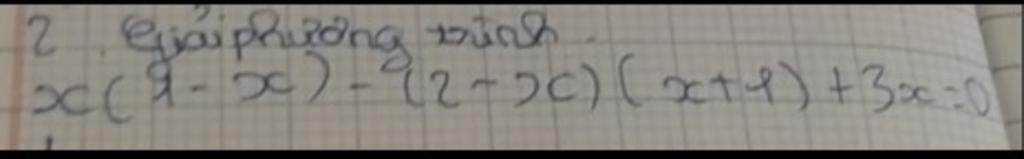 2. Giải phương trình.
x(1-x)-(2-x)(x+1)+3x=0